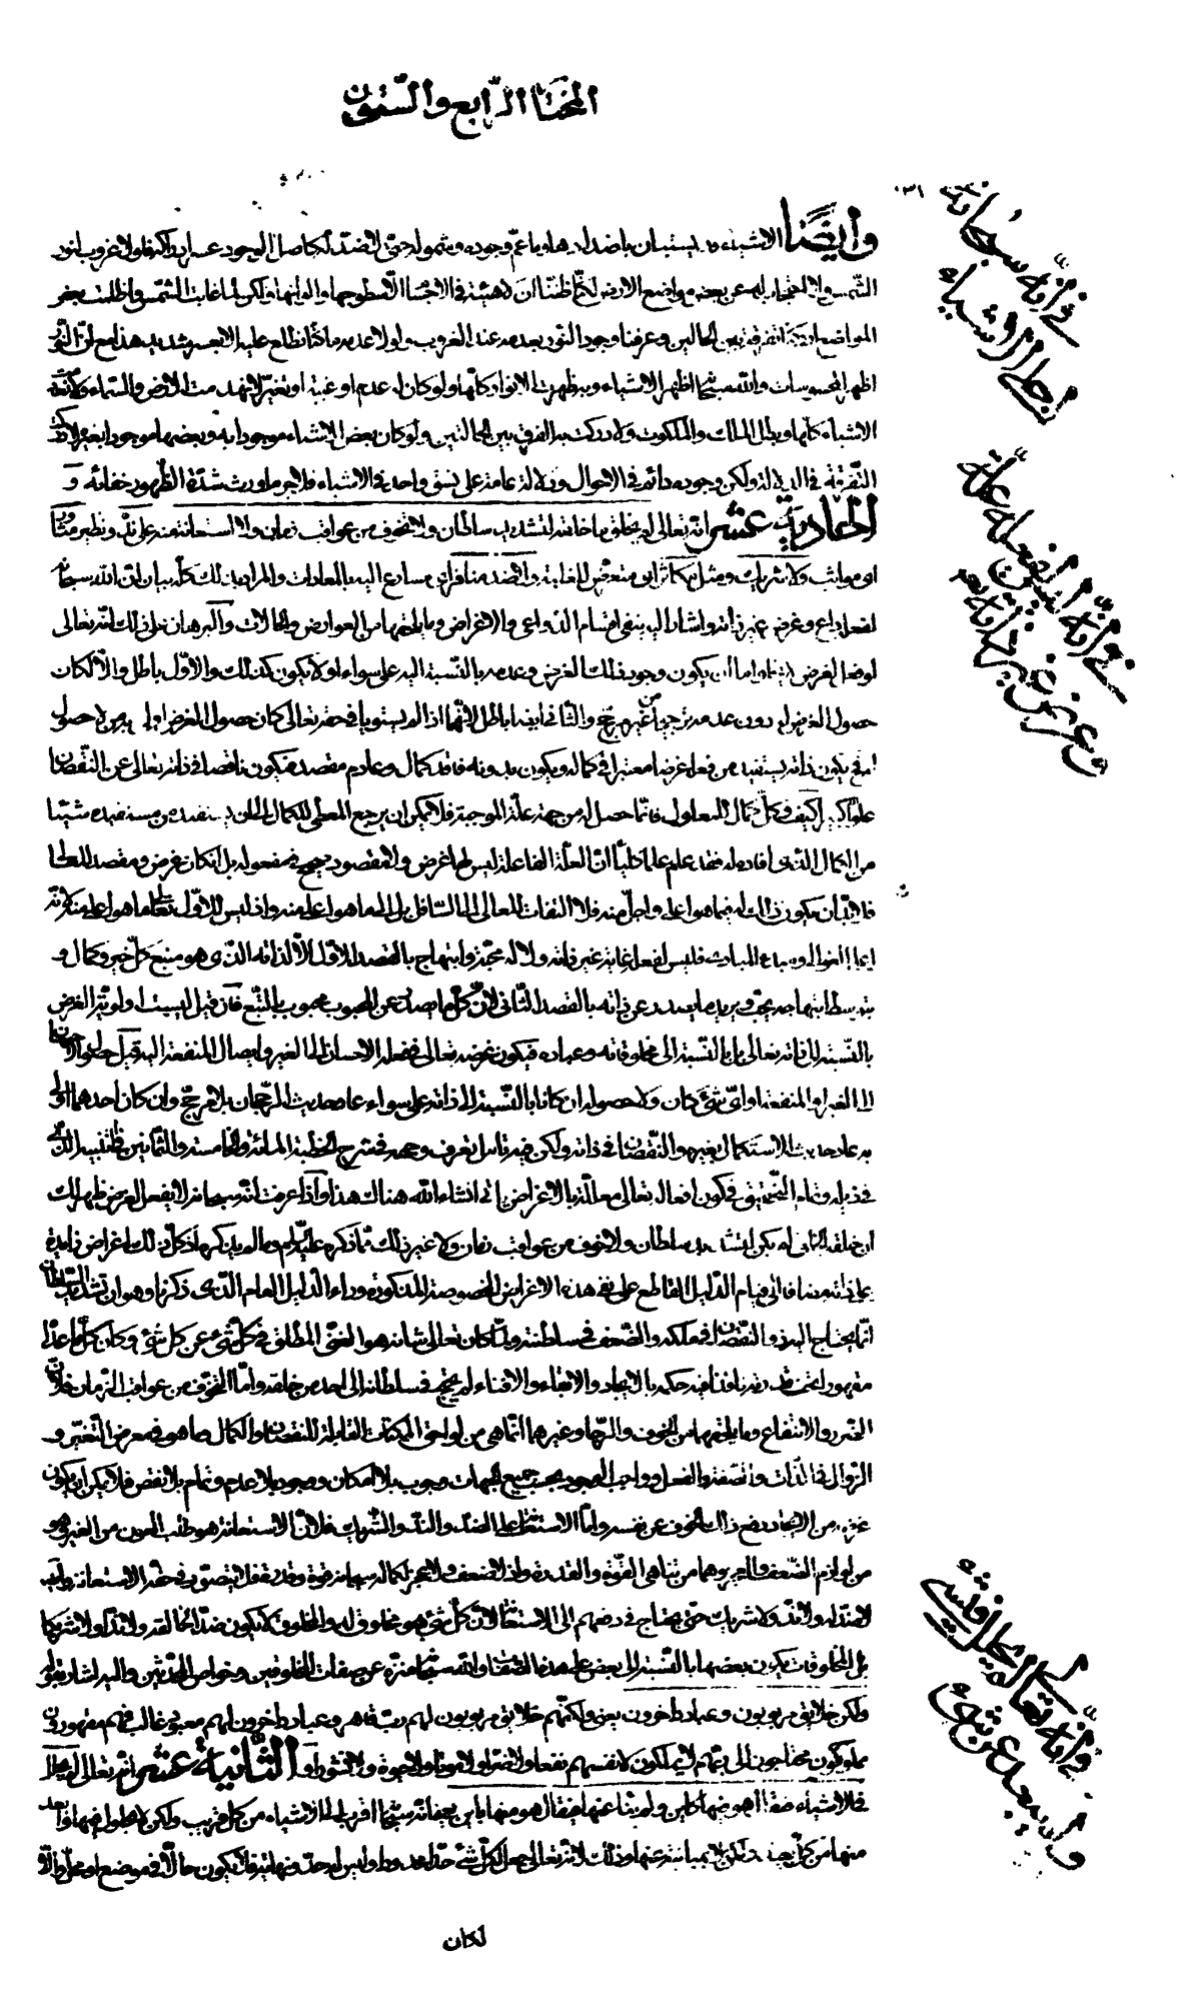 المختار الرابع والستون
في أنه سبحانه
أجلى الأشياء
وأيضا الاشياء يستبان باضدادها وما عم وجوده وشموله حتى لا ضد له
الشمس عن بعض مواضع الارض لكنا ظننا ان لا هيئة في الاجسام الا سطوحها والوانها ولكن لما غابت الشمس واظلمت بعض
المواضع التفرقة بين الحالين وعرفنا وجود النور بعدمه عند الغروب ولولا عدمه ما كنا نطلع عليه الا بعسر شديد هذا مع ان النور
اظهر المحسوسات والله سبحانه اظهر الاشياء وبه ظهرت الانوار كلها ولو كان له عدم او غيبة او تغير لانهدمت الارض والسماء
الاشياء كلها وبطل الملك والملكوت ولادركت به التفرقة بين الحالتين ولو كان بعض الاشياء موجودا به وبعضها موجودا بغيره لادركت
التفرقة في الدلالة ولكن وجوده دائم في الاحوال ودلالته عامة على نسق واحد في الاشياء فلا جرم اورث شدة الظهور خفائه و
الحادية عشر انه تعالى لم يخلق ما خلقه لتشديد سلطان ولا تخوف من عواقب زمان ولا استعانة منه على ند ونظير مثاور
اى مواثب ولا شريك ومثل مكاثر اى متعرض للغلبة ولا ضد منافر اى مسارع اليه بالمعادات والمراد بذلك كله بيان ان الله سبحانه
في أنه ليس لفعله علة
وغرض غير ذاته
داع وغرض غير ذاته واشار اليه بنفى اقسام الدواعي والاغراض وما يلحقها من العوارض والحالات والبرهان على ذلك انه تعالى
لو فعل لغرض اما ان يكون وجود ذلك الغرض وعدمه بالنسبة اليه على سواء او لا يكون كذلك والاول باطل والا لكان
حصول الغرض له دون عدمه ترجيحا من غير مرجح والثانى ايضا باطل لانهما اذا لم يستويا في حقه تعالى كان حصول الغرض اولى به من لا حصوله
ذاته يستفيد من فعله غرضا معتبرا في كماله ويكون بدونه فاقد كمال وعادم مقصد فيكون ناقصا في ذاته تعالى عن النقصان
علوا كبيرا كيف وكل كمال للمعلول فانما حصل له من جهة علته الموجبة فلا يمكن ان يرجع المعطى للكمال شيئا
من الكمال الذى افاده له فقد علم علما كليا ان العلة الفاعلة ليس لها غرض ولا مقصود صحيح في مفعوله بل ان كان غرض ومقصد للعالى
فلا بد ان يكون ذلك له فيما هو اعلى واجل منه فلا التفات للعالى الى السافل بل الى ما هو اعلى منه واذ ليس للاول تعالى ما هو اعلى منه لكونه
المبادى فليس لفعله غاية غير ذاته ولا له محبة وابتهاج بالقصد الاول الا لذاته الذى هو منبع كل خير وكمال و
بتوسط ابتهاجه يحب ويريد ما يصدر عن ذاته بالقصد الثانى لان كل ما يصدر عن المحبوب محبوب بالتبع فان قيل الغرض
بالنسبة الى ذاته تعالى بل بالنسبة الى مخلوقاته وعباده فيكون غرضه تعالى في فعله الاحسان الى الغير وايصال المنفعة اليه قيل حصول الاحسان
الى الغير او المنفعة او اى شىء كان ولا حصوله ان كانا بالنسبة الى ذاته على سواء عاد حديث الرجحان بلا مرجح وان كان احدهما اولى
به عاد حديث الاستكمال بغيره والنقصان في ذاته ولكن فيه تأمل تعرف وجهه في شرح الخطبة المائة والخامسة والثمانين
التحقيق في كون افعال تعالى معللة بالاغراض ياتى انشاء الله هناك هذا واذا عرفت انه سبحانه لا يفعل لغرض ظهر لك
ان خلقه لم يكن لتشديد سلطان ولا خوف من عواقب زمان ولا غير ذلك مما ذكره عليه السلام وما لم يذكره اذ كل ذلك اغراض زايدة
على ذاته مضافا الى قيام الدليل القاطع على نفى هذه الاغراض المخصوصة المذكورة وراء الدليل العام الذى ذكرنا وهو ان تشديد السلطان
انما يحتاج اليه ذو النقصان في ملكه والضعف في سلطنته ولما كان تعالى شانه هو الغنى المطلق في كل شىء عن كل شىء وكان كل ما عداه
مقهورا تحت قدرته نافذا فيه حكمه بالايجاد والابقاء والافناء لم يحتج في سلطانه الى احد من خلقه واما التخوف من عواقب الزمان فلان
التضرر والانتفاع وما يلحقهما من الخوف والرجاء وغيرهما انما هي من لواحق الممكنات القابلة للنقصان والكمال وما هو في معرض التغير و
الزوال في الذات والصفة والفعل وواجب الوجود بحسب جميع الجهات وجوب بلا امكان ووجود بلا عدم وتمام بلا نقص فلا يمكن ان يكون
غرضه من الايجاد رفع ذلك الخوف عن نفسه واما الاستعانة على الضد والند والشريك فلان الاستعانة هو طلب العون من الغير وهو
من لوازم الضعف والعجز وهما من تناهى القوة والقدرة واذ لا ضعف ولا عجز لكماله سبحانه قوة وقدرة فلا يتصور في حقه الاستعانة وايضا
لا ضد له ولا ند ولا شريك حتى يحتاج في دفعهم الى الاستعانة لان كل شىء هو مخلوق له والمخلوق لا يكون ضدا لخالقه ولا ندا ولا شريكا
بل المخلوقات يكون بعضها بالنسبة الى بعض على هذه الصفات والله سبحانه منزه عن صفات المخلوقين وخواص المحدثين واليه اشار بقوله
ولكن خلايق مربوبون وعباد داخرون يعنى ولكنهم خلايق مربوبون لهم رب قاهر وعباد داخرون لهم معبود غالب فهم مقهورون
مملوكون محتاجون الى ربهم لا يملكون لانفسهم نفعا ولا ضرا ولا موتا ولا حيوة ولا نشورا و الثانية عشر انه تعالى
في أنه تعالى لم يحلل في شيء
ولم يبعد عن شيء
في الاشياء فيقال هو فيها كاين ولم ينأ عنها فيقال هو منها باين يعنى انه سبحانه اقرب الى الاشياء من كل قريب ولكن لا بحلول فيها وابعد
منها من كل بعيد ولكن لا بمباينة عنها وذلك لانه تعالى جعل لكل شىء حدا محدودا وليس له حد ونهاية فلا يكون حالا في موضع او محل والا
لكان